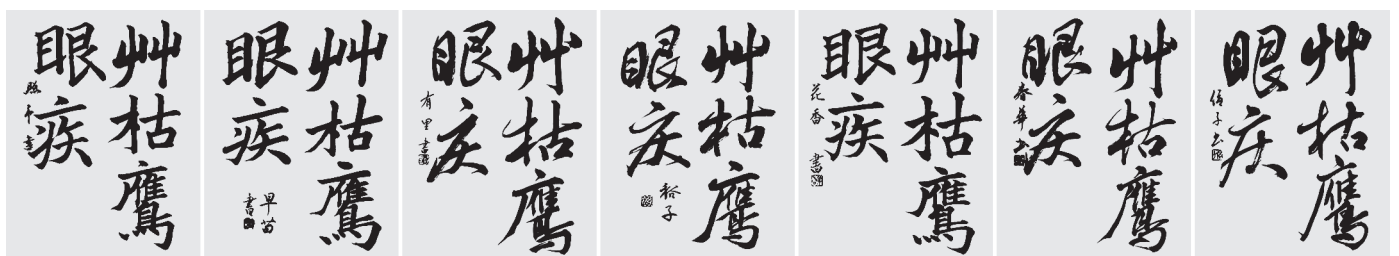 艸枯鷹
眼疾
照禾書
艸枯鷹
眼疾
早苗
書
艸枯鷹
眼疾
有里書
艸枯鷹
眼疾
裕子
艸枯鷹
眼疾
花香 書
艸枯鷹
眼疾
春華
艸枯鷹
眼疾